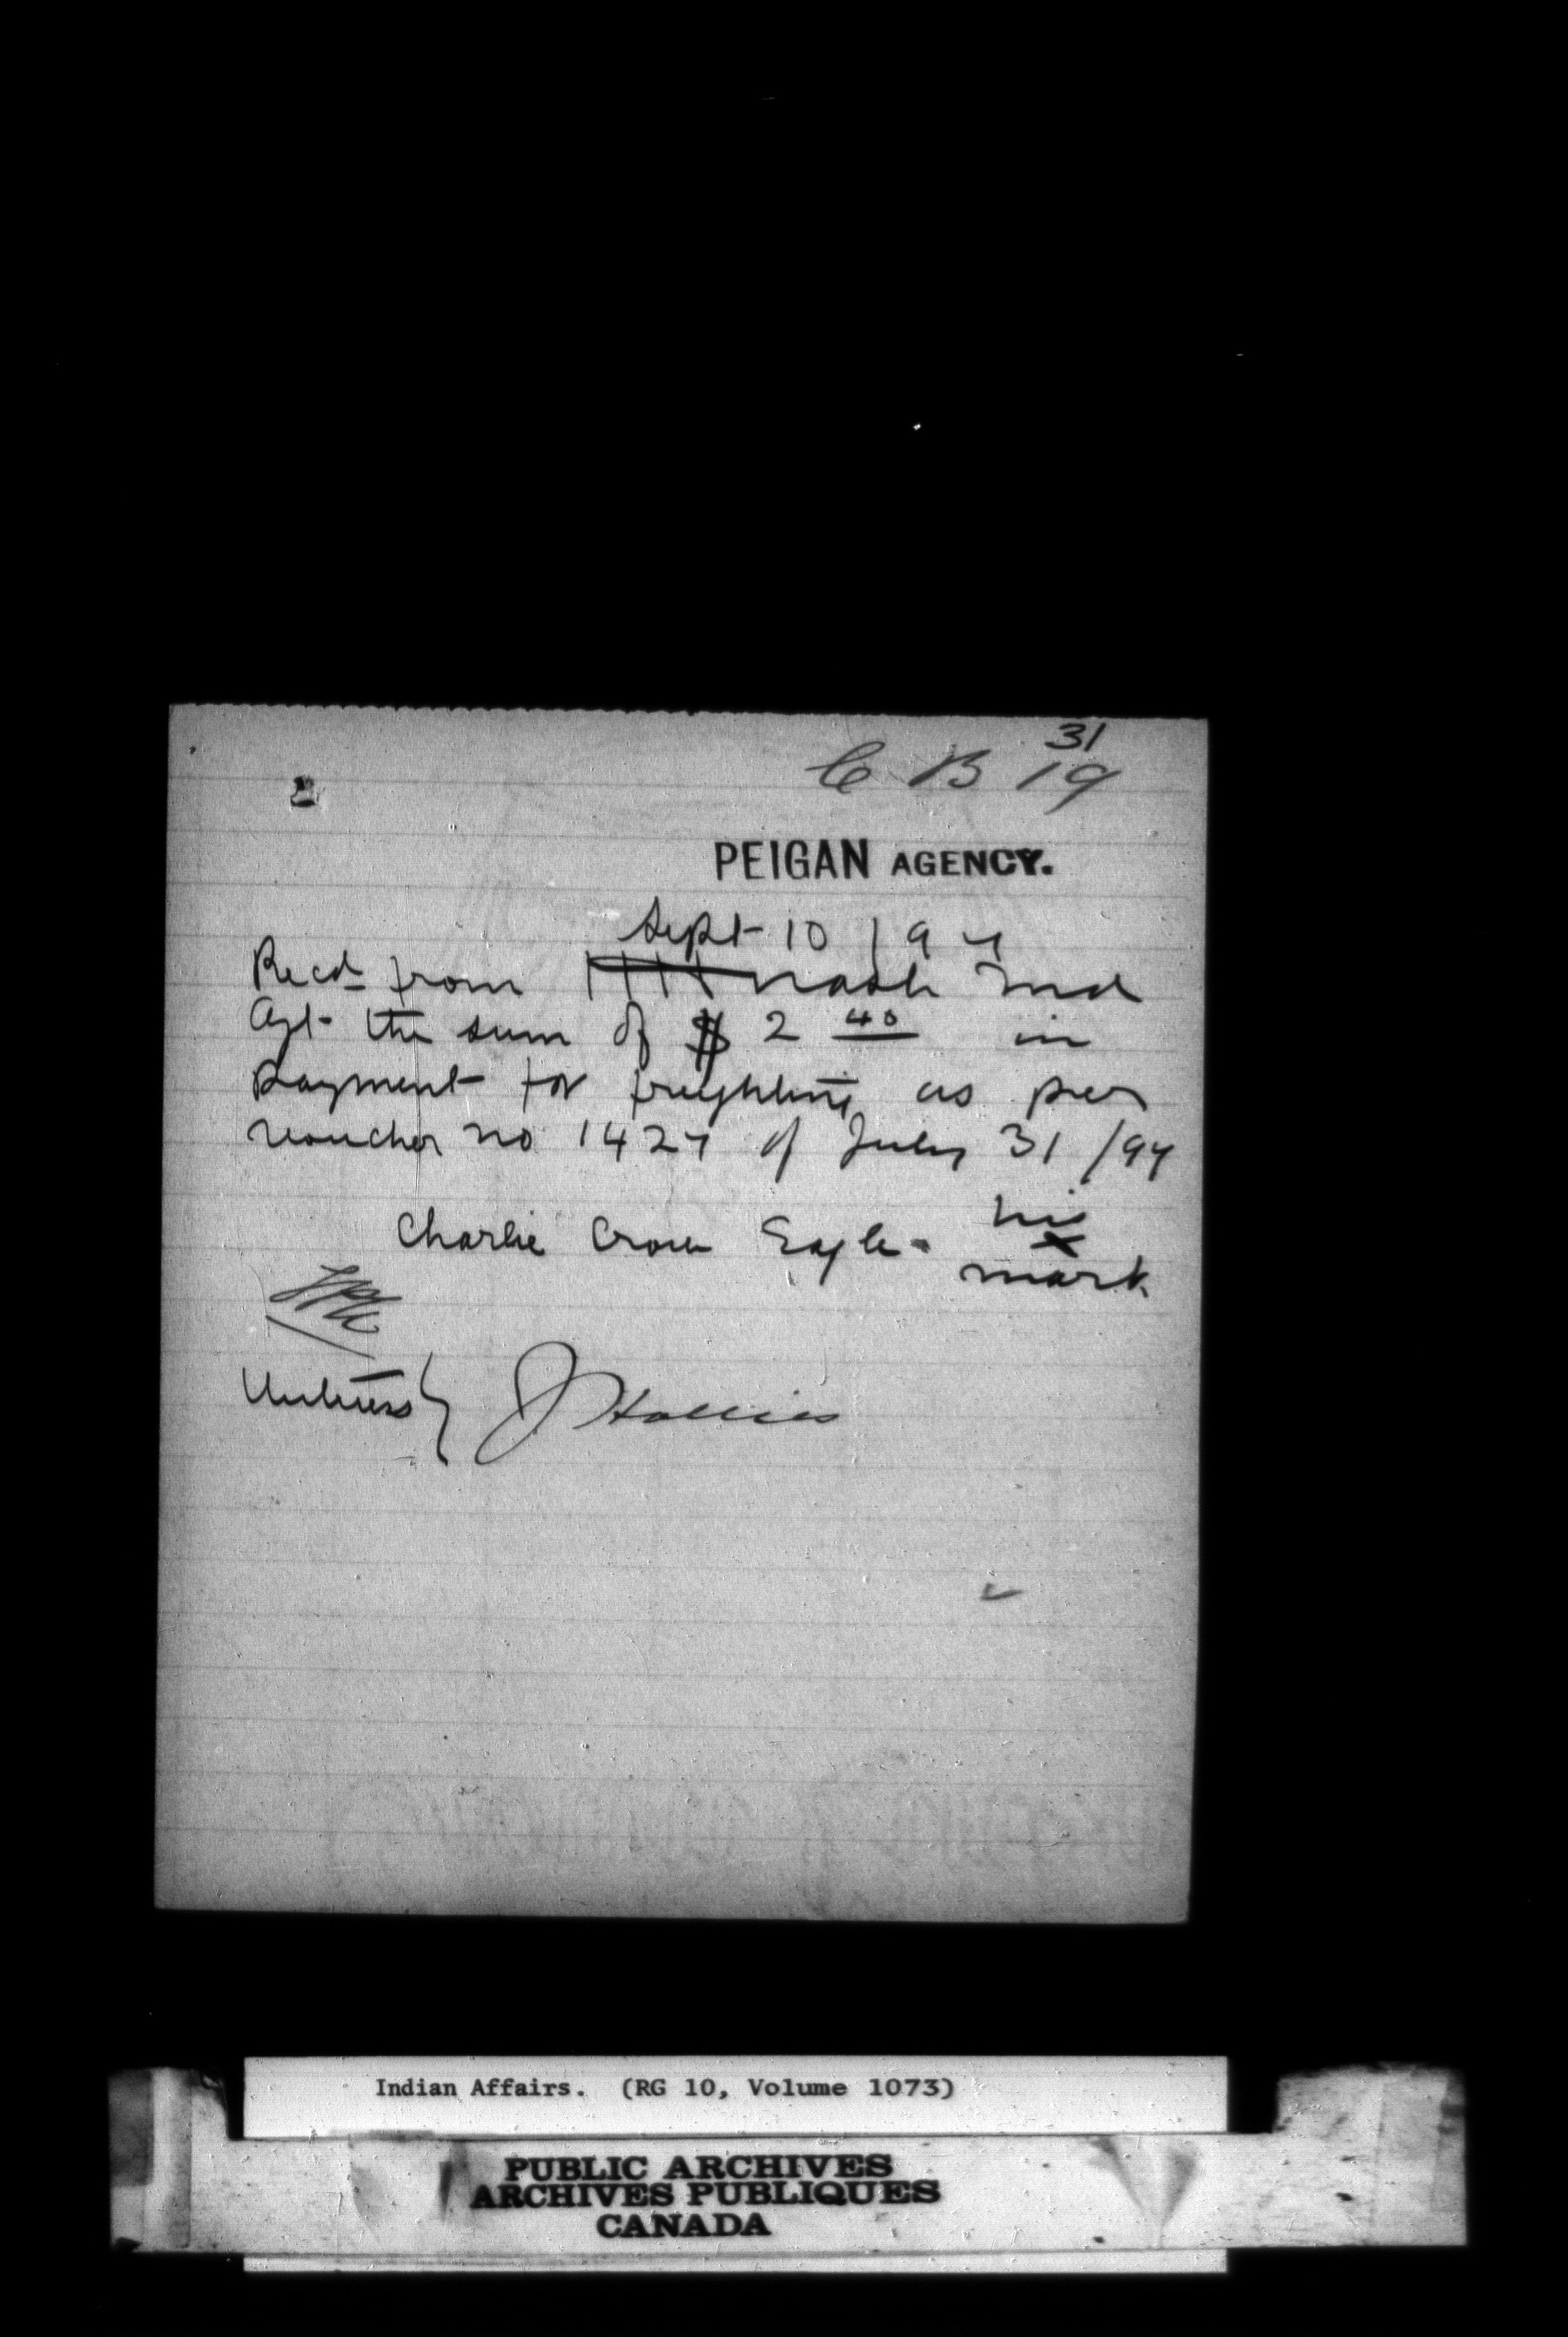 31
C B 19
PEIGAN AGENCY.
Sept 10 / 97
Recd from HH Nash Ind
Agt the sum of $ 2 40 in
payment for freighting as per
voucher no 1427 of July 31 /97
Charlie Crow Eagle his
x
mark
Witness } J Hollies
Indian Affairs. (RG 10, Volume 1073)
PUBLIC ARCHIVES
ARCHIVES PUBLIQUES
CANADA